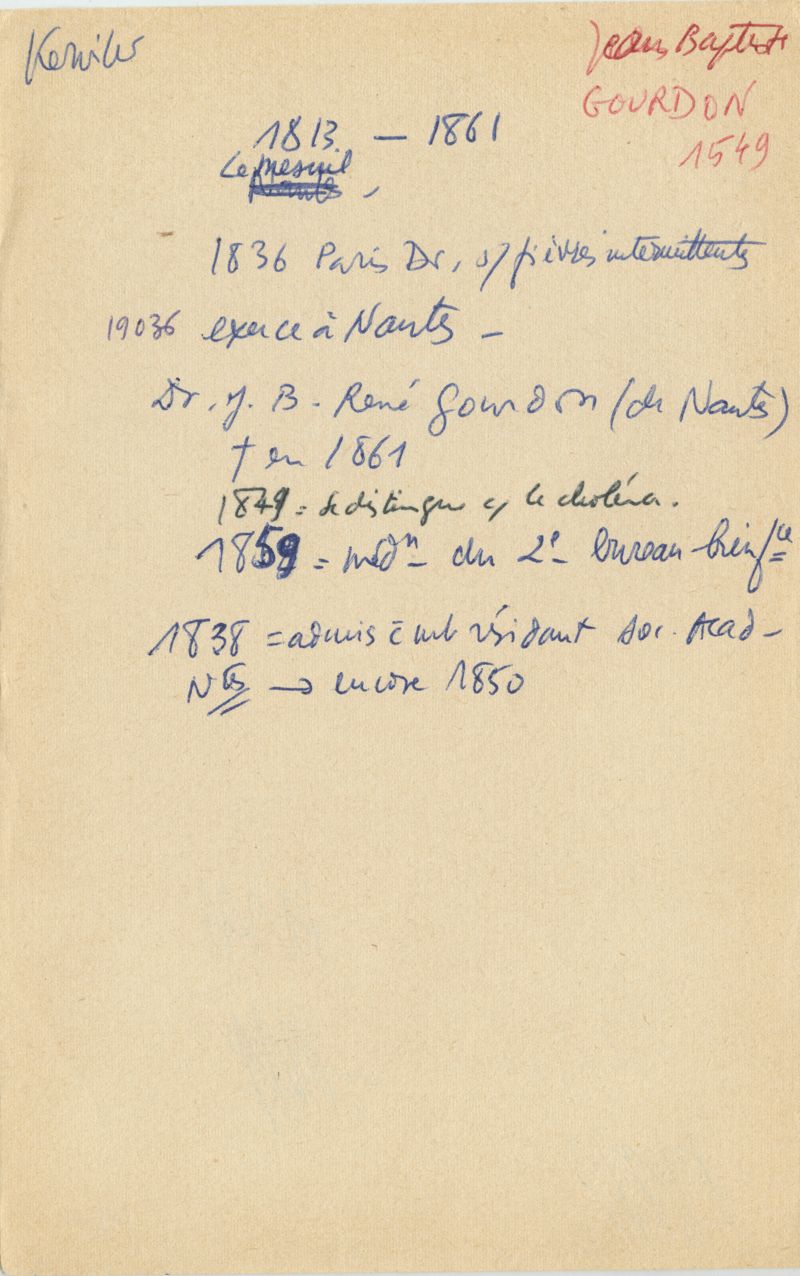 Kerviler
Jean Baptiste
GOURDON
1549
1813 — 1861
Le Mesnil
Nantes,
1836 Paris Dr, s/ fièvres intermittentes
19036 exerce à Nantes —
Dr. J. B. René Gourdon (de Nantes)
† en 1861
1849 = se distingue c/ le choléra.
1859 = médn du 2e bureau bienfce
1838 = admis c̄ mb résidant Soc. Acad —
Ntes → encore 1850